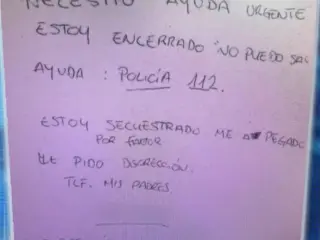 NECESITO AYUDA URGENTE
ESTOY ENCERRADO NO PUEDO SAL
AYUDA : POLICÍA 112.
ESTOY SECUESTRADO ME A PEGADO
POR FAVOR
LE PIDO DISCRECCIÓN.
TLF. MIS PADRES